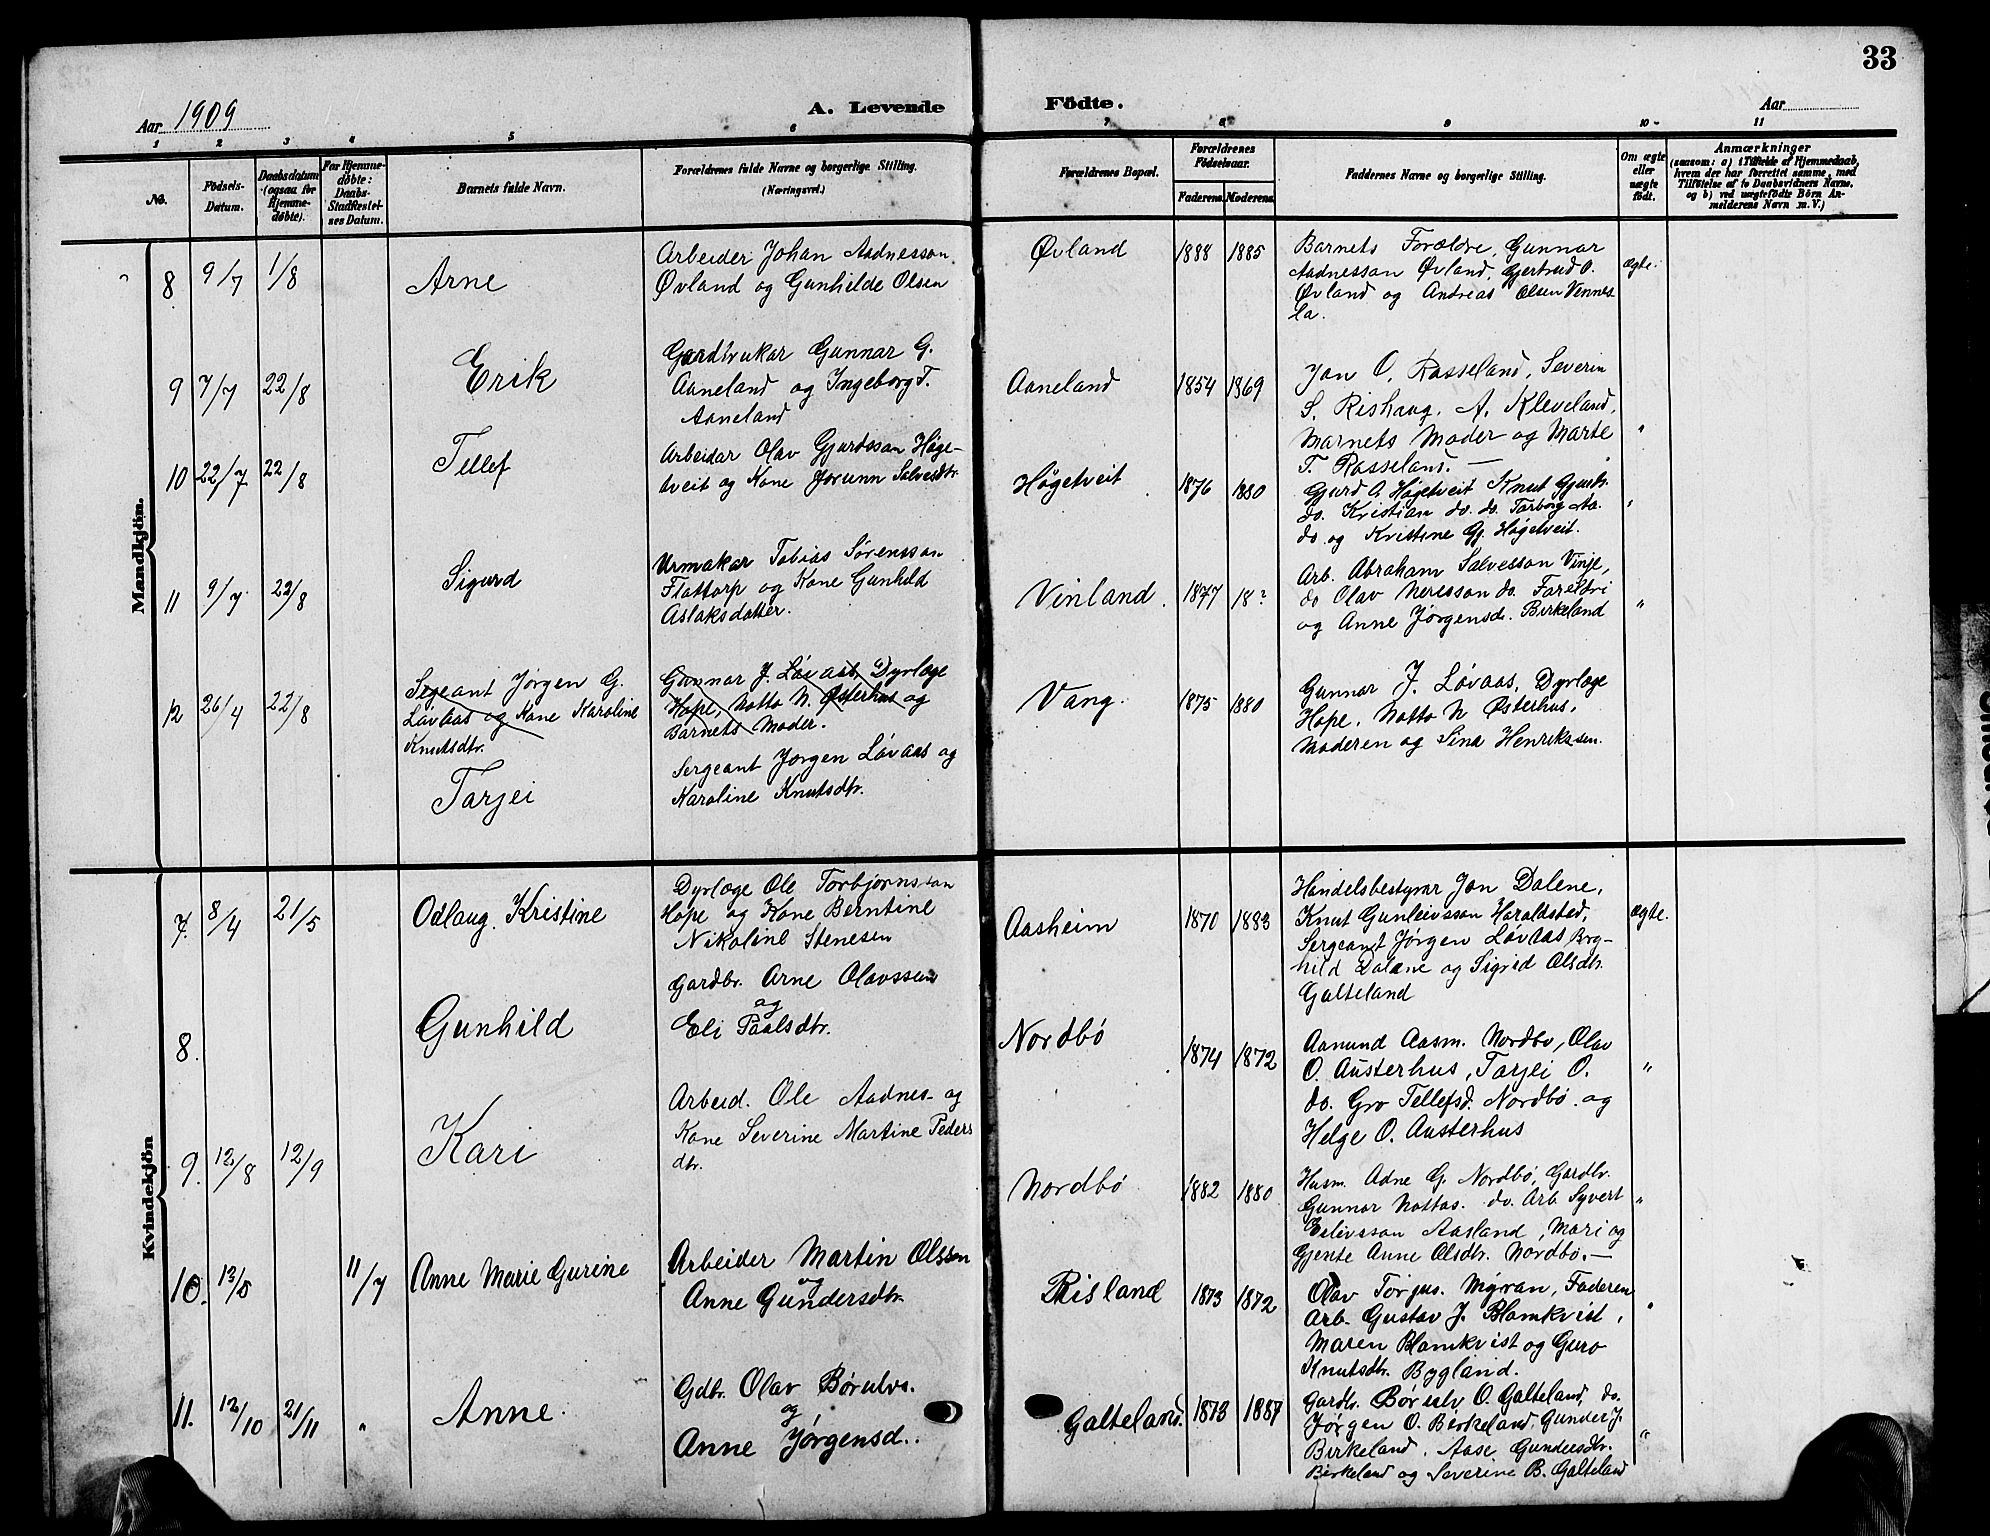 33
Aar 1909
A. Levende Födte.
Aar
1 2 3 4 5 6 7 8 9 10 11
No.
Fødsels-
Datum.
Daabsdatum
(ogsaa for
Hjemme-
døbte).
For Hjemme-
døbte:
Daabs-
Stadfæstel-
ses Datum.
Barnets fulde Navn.
Forældrenes fulde Navne og borgerlige Stilling.
(Næringsvei.)
Forældrenes Bopæl.
Forældrenes
Fødselsaar.
Faderens. Moderens.
Faddernes Navne og borgerlige Stilling.
Om ægte
eller
uægte
født.
Anmærkninger
(saasom: a) i Tilfælde af Hjemmedaab,
hvem der har forrettet samme, med
Tilføielse af to Daabsvidners Navne,
og b) ved uægtefødte Børn An-
melderens Navn m. V.)
Mandkjön.
8 9/7 1/8
Arne
Arbeider Johan Aadnesson
Øvland og Gunhilde Olsen
Øvland
1888 1885
Barnets Forældre, Gunnar
Aadnesson Øvland, Gjertrud O.
Øvland og Andreas Olsen Vennes-
la.
Ægte.
9 7/7 22/8
Erik
Gardbrukar Gunnar G.
Aaneland og Ingeborg T.
Aaneland
Aaneland
1854 1869
Jon O. Rasseland, Severin
S. Rishaug, A. Kleveland,
Marnets Moder og Marte
T. Rasseland. —
"
10 22/7 22/8
Tellef
Arbeidar Olav Gjurdsson Høge-
tveit og Kone Jorunn Salvesdtr.
Høgetveit
1876 1880
Gjurd A Høgetveit Knut Gjurds.
do. Kristian do. do. Tarborg Aa.
do og Kristine Gj. Høgetveit.
"
11 9/7 22/8
Sigurd
Urmakar Tobias Sørensson
Flottorp og Kone Gunhild
Aslaksdatter.
Vinland.
1877 18?
Arb. Abraham Salvesson Vinje,
do Olav Neresson do. Foreldri
og Anne Jørgensd. Birkeland
"
12 26/4 22/8
Segeant Jørgen G.
Løvaas og Kone Karoline
Knutsdtr.
Tarjei
Gunnar J. Løvaas, Dyrlæge
Hope, Notto N. Østerhus og
Barnets Moder.
Sergeant Jørgen Løvaas og
Karoline Knutsdtr.
Vang.
1875 1880
Gunnar J. Løvaas, Dyrlæge
Hope, Notto N Østerhus,
Moderen og Sina Henriksen.
Kvindekjön
7. 8/4 21/5
Odlaug Kristine
Dyrlæge Ole Torbjørnsson
Hope og Kone Berntine
Nikoline Stenesen
Aasheim
1870 1883
Handelsbestyrar Jon Dalene,
Knut Gunleivsson Haraldsted,
Sergeant Jørgen Løvaas Borg-
hild Dalene og Sigrid Olsdtr.
Galteland
Ægte.
8.
Gunhild
Gardbr. Arne Olavssen
og
Eli Paalsdtr.
Nordbö
1874 1872
Aanund Aasm. Nordbø, Olav
O. Austerhus, Tarjei O.
do. Gro Tellefsd. Nordbø og
Helge O. Austerhus
"
9. 12/8 12/9
Kari
Arbeid. Ole Aadnes- og
Kone Severine Martine Peders
dtr.
Nordbø
1882 1880
Husm. Adne G. Nordbø, Gardbr.
Gunnar Nottos. do. Arb. Syvert
Eilivsson Aasland, Mari og
Gjente Anne Olsdtr. Nordbø. —
"
10. 13/5 11/7
Anne Marie Gurine
Arbeider Martin Olsson
og
Anne Gundersdtr.
Risland
1873 1872
Olav Torjus. Myran, Faderen
Arb. Gustav J. Blomkvist,
Maren Blomkvist og Guro
Knutsdtr. Bygland.
"
11. 12/10 21/11 "
Anne.
Gdbr. Olav Børulvs.
og
Anne Jørgensd..
Galteland.
1873 1887
Gardbr. Børulv O. Galteland, do.
Jørgen O. Birkeland, Gunder J.
Birkeland, Aase Gundersdtr.
Birkeland og Severine B. Galteland
"